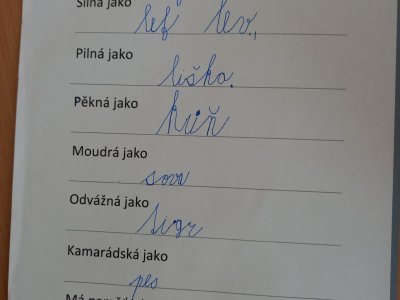 Silná jako
lef lev.,
Pilná jako
liška.
Pěkná jako
kůň
Moudrá jako
sova
Odvážná jako
tigr
Kamarádská jako
pes
Má